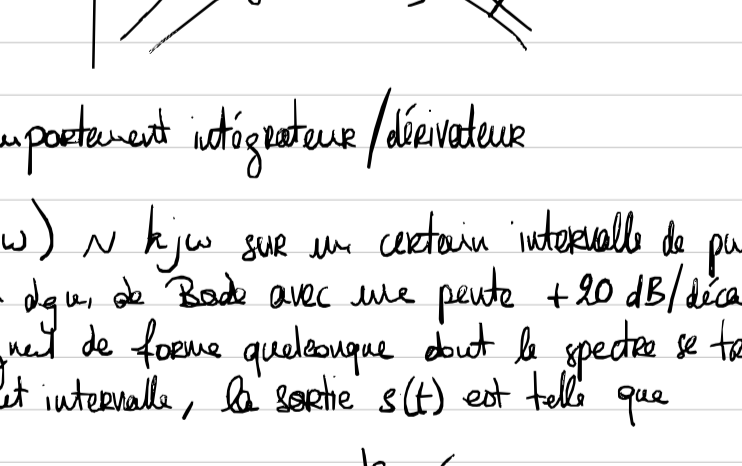 mportement intégrateur/dérivateur
w) ~ kjw sur un certain intervalle de pu
de Bode avec une pente +20 dB/déca
de forme quelconque dont le spectre se
et intervalle, la sortie s(t) est telle que